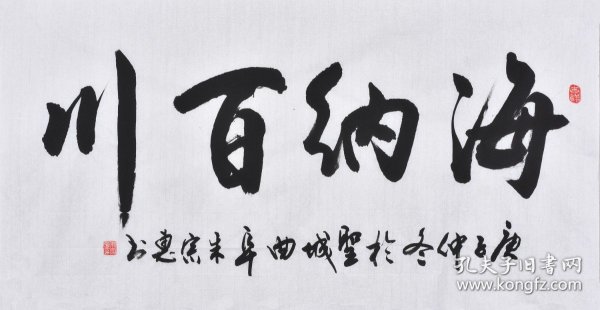 海纳百川
庚子仲冬於聖城曲阜朱宗惠书
孔夫子旧书网
www.kongfz.com